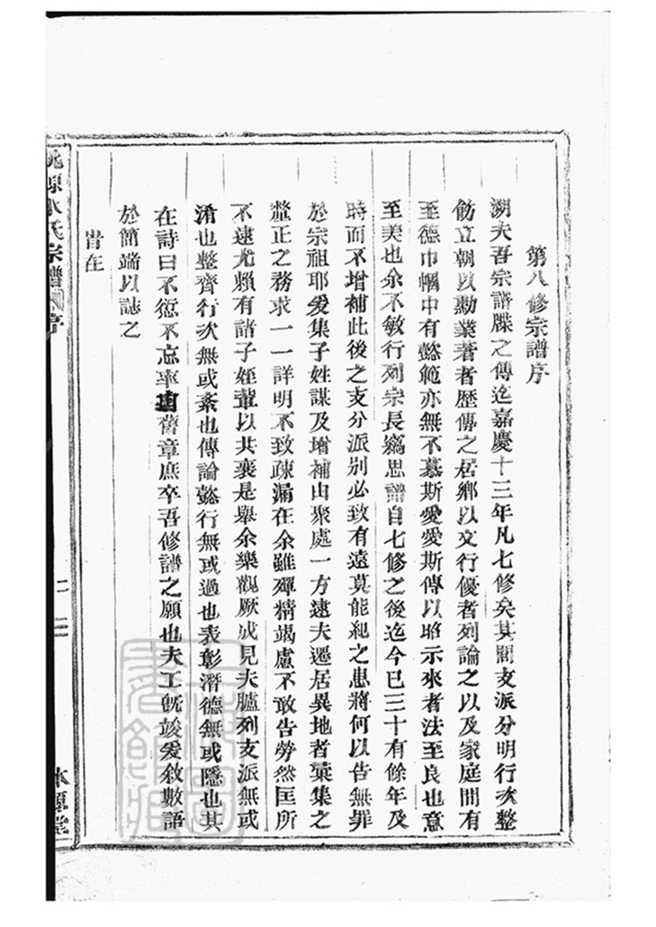 第八修宗譜序
溯夫吾宗譜牒之傳迄嘉慶十三年凡七修矣其間支派分明行次整
飭立朝以勳業著者歷傳之居鄉以文行優者列論之以及家庭間有
至德巾幗中有懿範亦無不慕斯愛愛斯傳以昭示來者法至良也意
至美也余不敏行列宗長竊思譜自七修之後迄今已三十有餘年及
時而不增補此後之支分派別必致有遠莫能紀之患將何以告無罪
於宗祖耶爰集子姓謀及增補由聚處一方遠夫遷居異地者彙集之
釐正之務求一一詳明不致疎漏在余雖殫精竭慮不敢告勞然匡所
不逮尤賴有諸子姪輩以共襄是舉余樂觀厥成見夫臚列支派無或
淆也整齊行次無或紊也傳論懿行無或過也表彰潛德無或隱也其
在詩曰不愆不忘率由舊章庶卒吾修譜之願也夫工旣竣爰敘數語
於簡端以誌之
氏宗譜
序